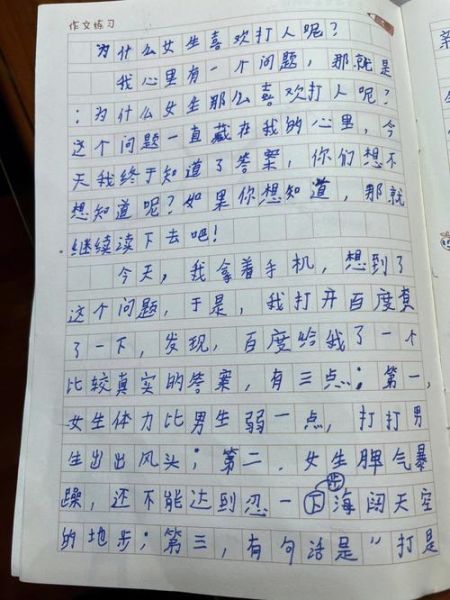 作文练习
为什么女生喜欢打人呢?
我心里有一个问题,那就是
:为什么女生那么喜欢打人呢?
这个问题一直藏在我的心里,今
天我终于知道了答案,你们想不
想知道呢?如果你想知道,那就
继续读下去吧!
今天,我拿着手机,想到了
这个问题,于是,我打开百度查
了一下,发现,百度给我了一个
比较真实的答案,有三点:第一,
女生体力比男生弱一点,打打男
生出出风头;第二,女生脾气暴
躁,还不能达到忍一步海阔天空
的地步;第三,有句话是"打是